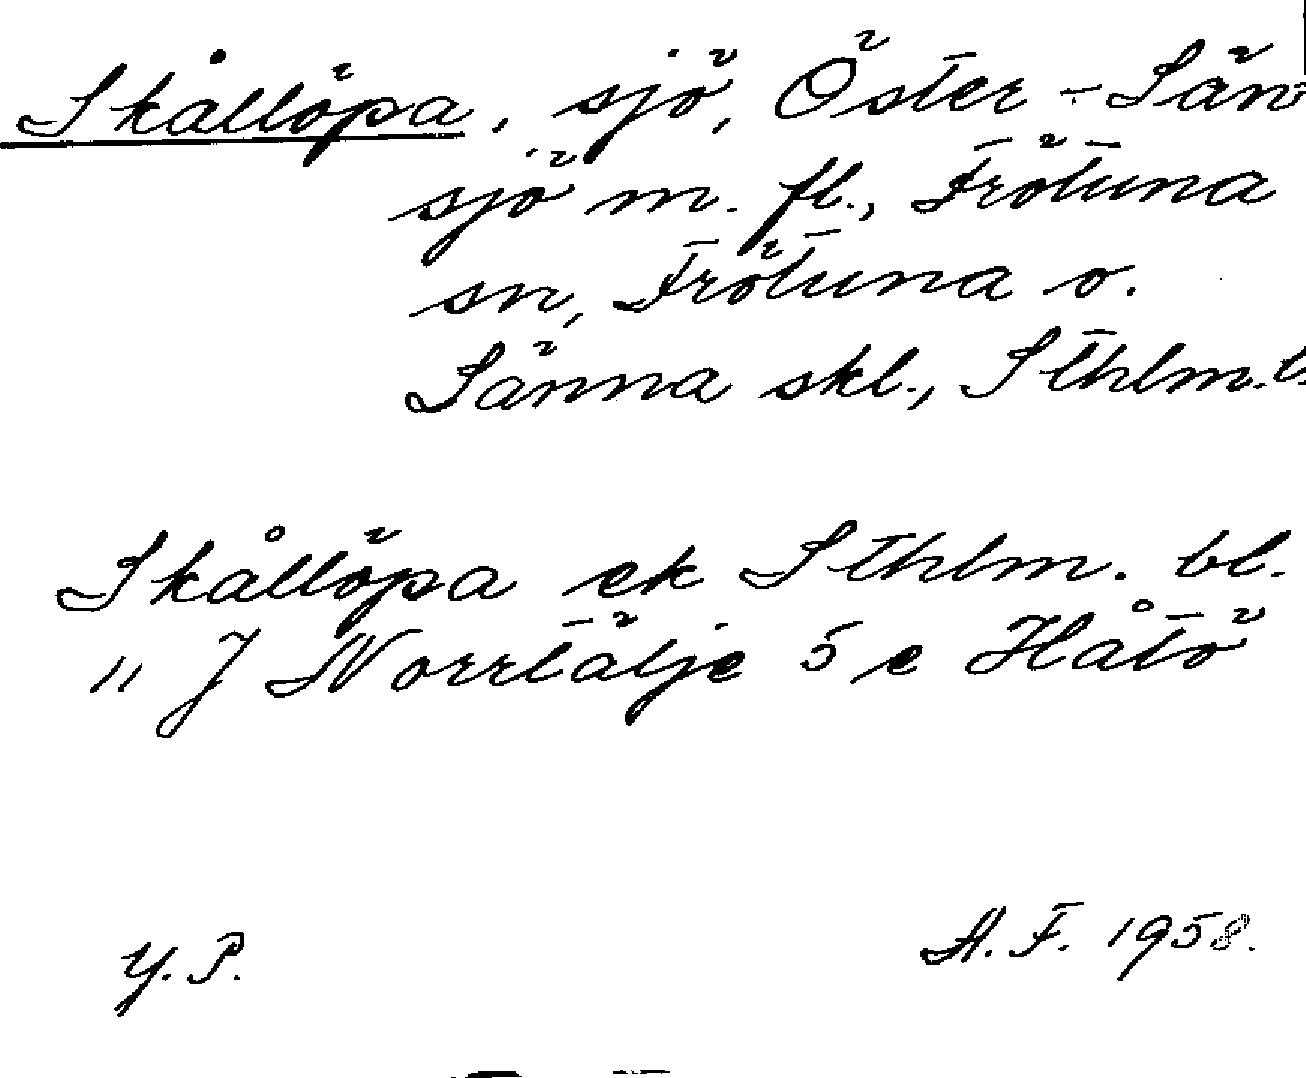 Skållöpa, sjö, Öster-Län
sjö m. fl., Frötuna
sn, Frötuna o.
Länna skl., Sthlm. l.
Skållöpa ek Sthlm. bl.
" J Norrtälje 5 e Håtö
Y. P. A. F. 1958.